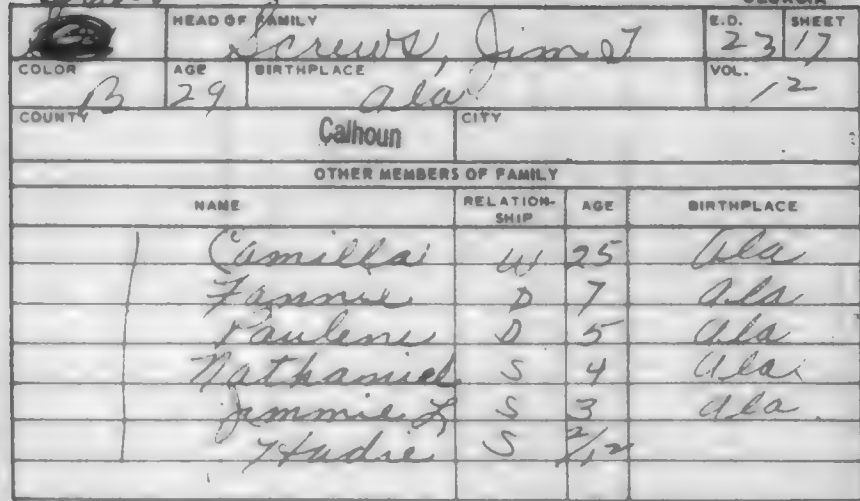 GEORGIA
HEAD OF FAMILY E.D. SHEET
Screws, Jim J 23 17
COLOR AGE BIRTHPLACE VOL.
B 29 Ala 12
COUNTY Calhoun CITY
OTHER MEMBERS OF FAMILY
NAME RELATION-SHIP AGE BIRTHPLACE
Camilla W 25 Ala
Fannie D 7 Ala
Paulene D 5 Ala
Nathaniel S 4 Ala
Jimmie L S 3 Ala
Hudie S 2/12